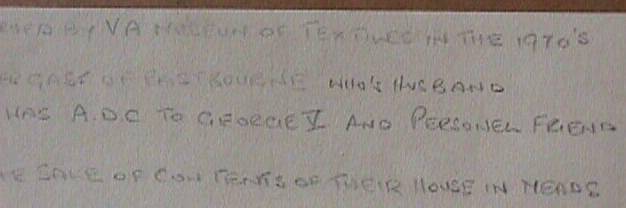 BY VA MUSEUM OF TEXTILES IN THE 1970'S
OF EASTBOURNE WHO'S HUSBAND
WAS A.D.C TO GEORGE V AND PERSONEL FRIEND
SALE OF CONTENTS OF THEIR HOUSE IN MEADS